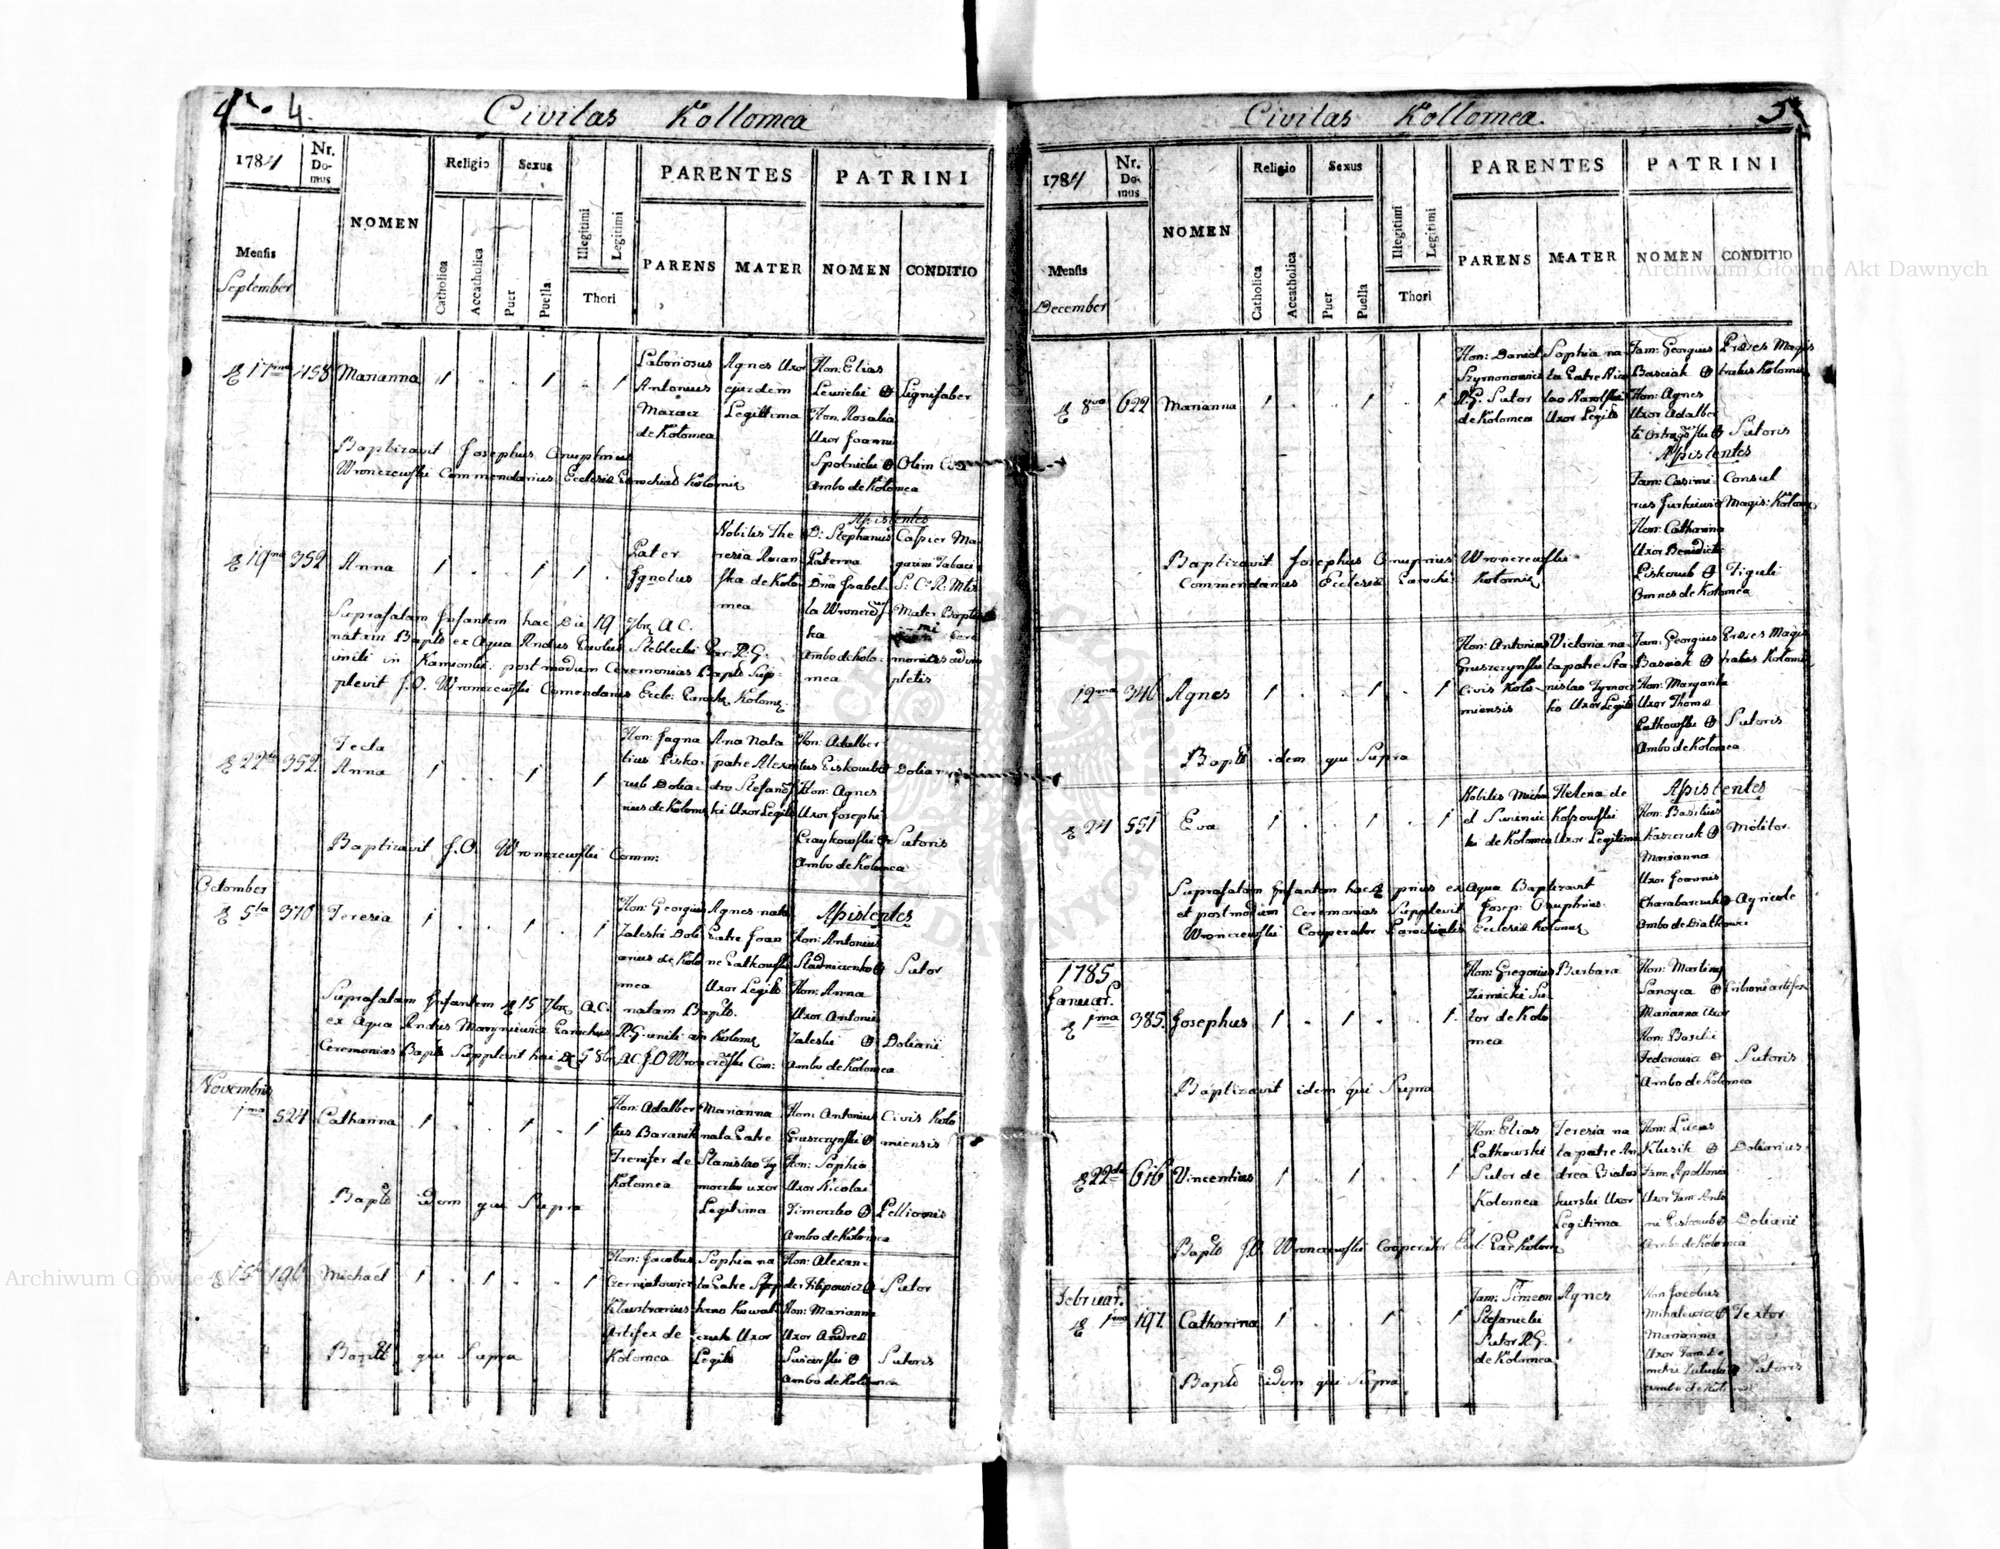 4
Civitas Kollomea
1784
Nr. Do-mus
NOMEN
Religio
Sexus
PARENTES
PATRINI
Mensis
September
Catholica
Accatholica
Puer
Puella
Illegitimi
Legitimi
Thori
PARENS
MATER
NOMEN
CONDITIO
17ma 458 Marianna 1 . . 1 . 1
Laboriosus
Antonius
de Kolomea
Agnes Uxor
ejusdem
Legittima
Hon: Elias
Lewicki
Hon. Rosalia
Uxor Joannis
Spolnicki
Ambo de Kolomea
Lignifaber
Olim
Baptizavit Josephus Onuphrius
Wronczewski Commendarius Ecclesiæ Parochial Kolomiæ
19na 352 Anna 1 . . 1 1 .
Pater
Ignotus
Nobilis The
resia
ska de Kolo
mea
Assistentes
D: Stephanus
Paterna
Dna Isabel
la Wroncze
ka
Ambo de Kolo-
mea
Cassier Ma
gazini Tabaci
Mater Baptis
mi Cere
moniis adim
pletis
Suprafatam Infantem hac Die 19 7bris A.C.
natam Bapt ex Aqua Andreas Pawlus Steblecki Par. R.G.
uniti in Kamionki. post modum Ceremonias Bapt Sup
plevit J.O. Wronczewski Comendarius Eccl: Paroch Kolom.
22da 352 Tecla
Anna 1 . . 1 . 1
Hon: Igna
tius Pisko-
rub Dolia-
rius de Kolom
Ana Nata
patre Alexan
dro Stefano
ki Uxor Legit
Hon: Adalber
tus Piskorub
Hon: Agnes
Uxor Josephi
Czaykowski
Ambo de Kolomea
Doliarii
Sutoris
Baptizavit J.O. Wronczewski Comm:
Octomber
5ta 370 Teresia 1 . . 1 . 1
Hon: Georgius
Zaleski Doli
arius de Kolo
mea
Agnes nata
Patre Joan
ne Latkowski
Uxor Legit
Assistentes
Hon: Antonius
Stadniczenko
Hon: Anna
Uxor Antonii
Zaleski
Ambo de Kolomea
Sutor
Doliarii
Suprafatam Infantem 15 7bris A.C. natam Bapt.
ex Aqua Andreas Martyniewicz Parochus R.G. uniti Kolom
Ceremonias Bapt Supplevit hac 5 8b A.C. J.O Wronczewski Com:
Novembris
1ma 524 Catharina 1 . . 1 . 1
Hon: Adalber
tus Baranik
Frenifer de
Kolomea
Marianna
nata Patre
Stanislao Ty
moczko uxor
Legitima
Hon: Antonius
Gruszczynski
Hon: Sophia
Uxor Nicolai
Timoczko
Ambo de Kolomea
Civis Kolo
miensis
Pellionis
Bapt idem qui Supra
15 196 Michael 1 . 1 . . 1
Hon: Jacobus
Czerniatowicz
Artifex de
Kolomea
Sophia na
ta Patre
czuk Uxor
Legit
Hon: Alexan-
der Filipowicz
Hon: Marianna
Uxor Andrea
Ambo de Kolomea
Sutor
Sutoris
Bapt qui Supra
Civitas Kollomea.
5
1784
Nr. Do-mus
NOMEN
Religio
Sexus
PARENTES
PATRINI
Mensis
December
Catholica
Accatholica
Puer
Puella
Illegitimi
Legitimi
Thori
PARENS
MATER
NOMEN
CONDITIO
8va 622 Marianna 1 . . 1 . 1
Hon: Daniel
Szymonowicz
R.G. Sutor
de Kolomea
Sophia na
ta Patre Nico
lao
Uxor Legit
Fam: Georgius
Basciak
Hon: Agnes
Uxor Adalber
ti
Præses Magis
tratus Kolomea
Sutoris
Assistentes
Fam: Casimi
rus Jurkiewicz
Hon: Catharina
Uxor Benedicti
Piskorub
Omnes de Kolomea
Consul
Magis: Kolom
Figuli
Baptizavit Josephus Onuprius Wronczewski
Commendarius Ecclesiæ Parochi: Kolomiæ
12ma 346 Agnes 1 . . 1 . 1
Hon: Antonius
Gruszczynski
Civis Kolo
miensis
Victoria na
ta patre Sta
nislao Tymocz
ko Uxor Legit
Fam: Georgius
Basciak
Hon: Margarita
Uxor Thoma
Latkowski
Ambo de Kolomea
Præses Magis
tratus Kolomea
Sutoris
Bapt idem qui Supra
24 551 Eva 1 . . 1 . 1
Nobilis Micha
el
ki de Kolomea
Helena de
Kossowski
Uxor Legitima
Assistentes
Hon: Basilius
Kaszczuk
Marianna
Uxor Joannis
Charabarczuk
Ambo de Diatkowce
Molitor
Agricolæ
Suprafatam Infantem hac prius ex Aqua Baptizavit
et postmodum Ceremonias Supplevit Josep: Onuphrius
Wronczewski Cooperator Parochialis Ecclesiæ Kolomeæ
1785
Januar.
1ma 385. Josephus 1 . 1 . . 1.
Hon: Gregorius
Ziemicki Su-
tor de Kolo
mea
Barbara
Hon: Martinus
Sanoyca
Marianna Uxor
Hon: Basilii
Fedorowicz
Ambo de Kolomea
Cribrorii artifex
Sutoris
Baptizavit idem qui Supra
22da 616 Vincentius 1 . 1 . . 1
Hon: Elias
Latkowski
Sutor de
Kolomea
Teresia na
ta patre An
drea Bialos
kurski Uxor
Legitima
Hon: Lucas
Klusik
Fam: Apollonia
Uxor Fam: Anto
ni Piskorub
Ambo de Kolomea
Doliarius
Doliarii
Bapt J.O. Wronczewski Cooperator Eccl: Par Kolom
Februar.
1ma 197 Catharina 1 . . 1 . 1
Fam: Simeon
Stefanicki
Sutor R.G.
de Kolomea
Agnes
Hon Jacobus
Mihalewicz
Marianna
Uxor Fam: De
metri
Ambo de Kolomea
Textor
Sutoris
Bapt idem qui Supra
Archiwum Główne Akt Dawnych
Archiwum Główne Akt Dawnych